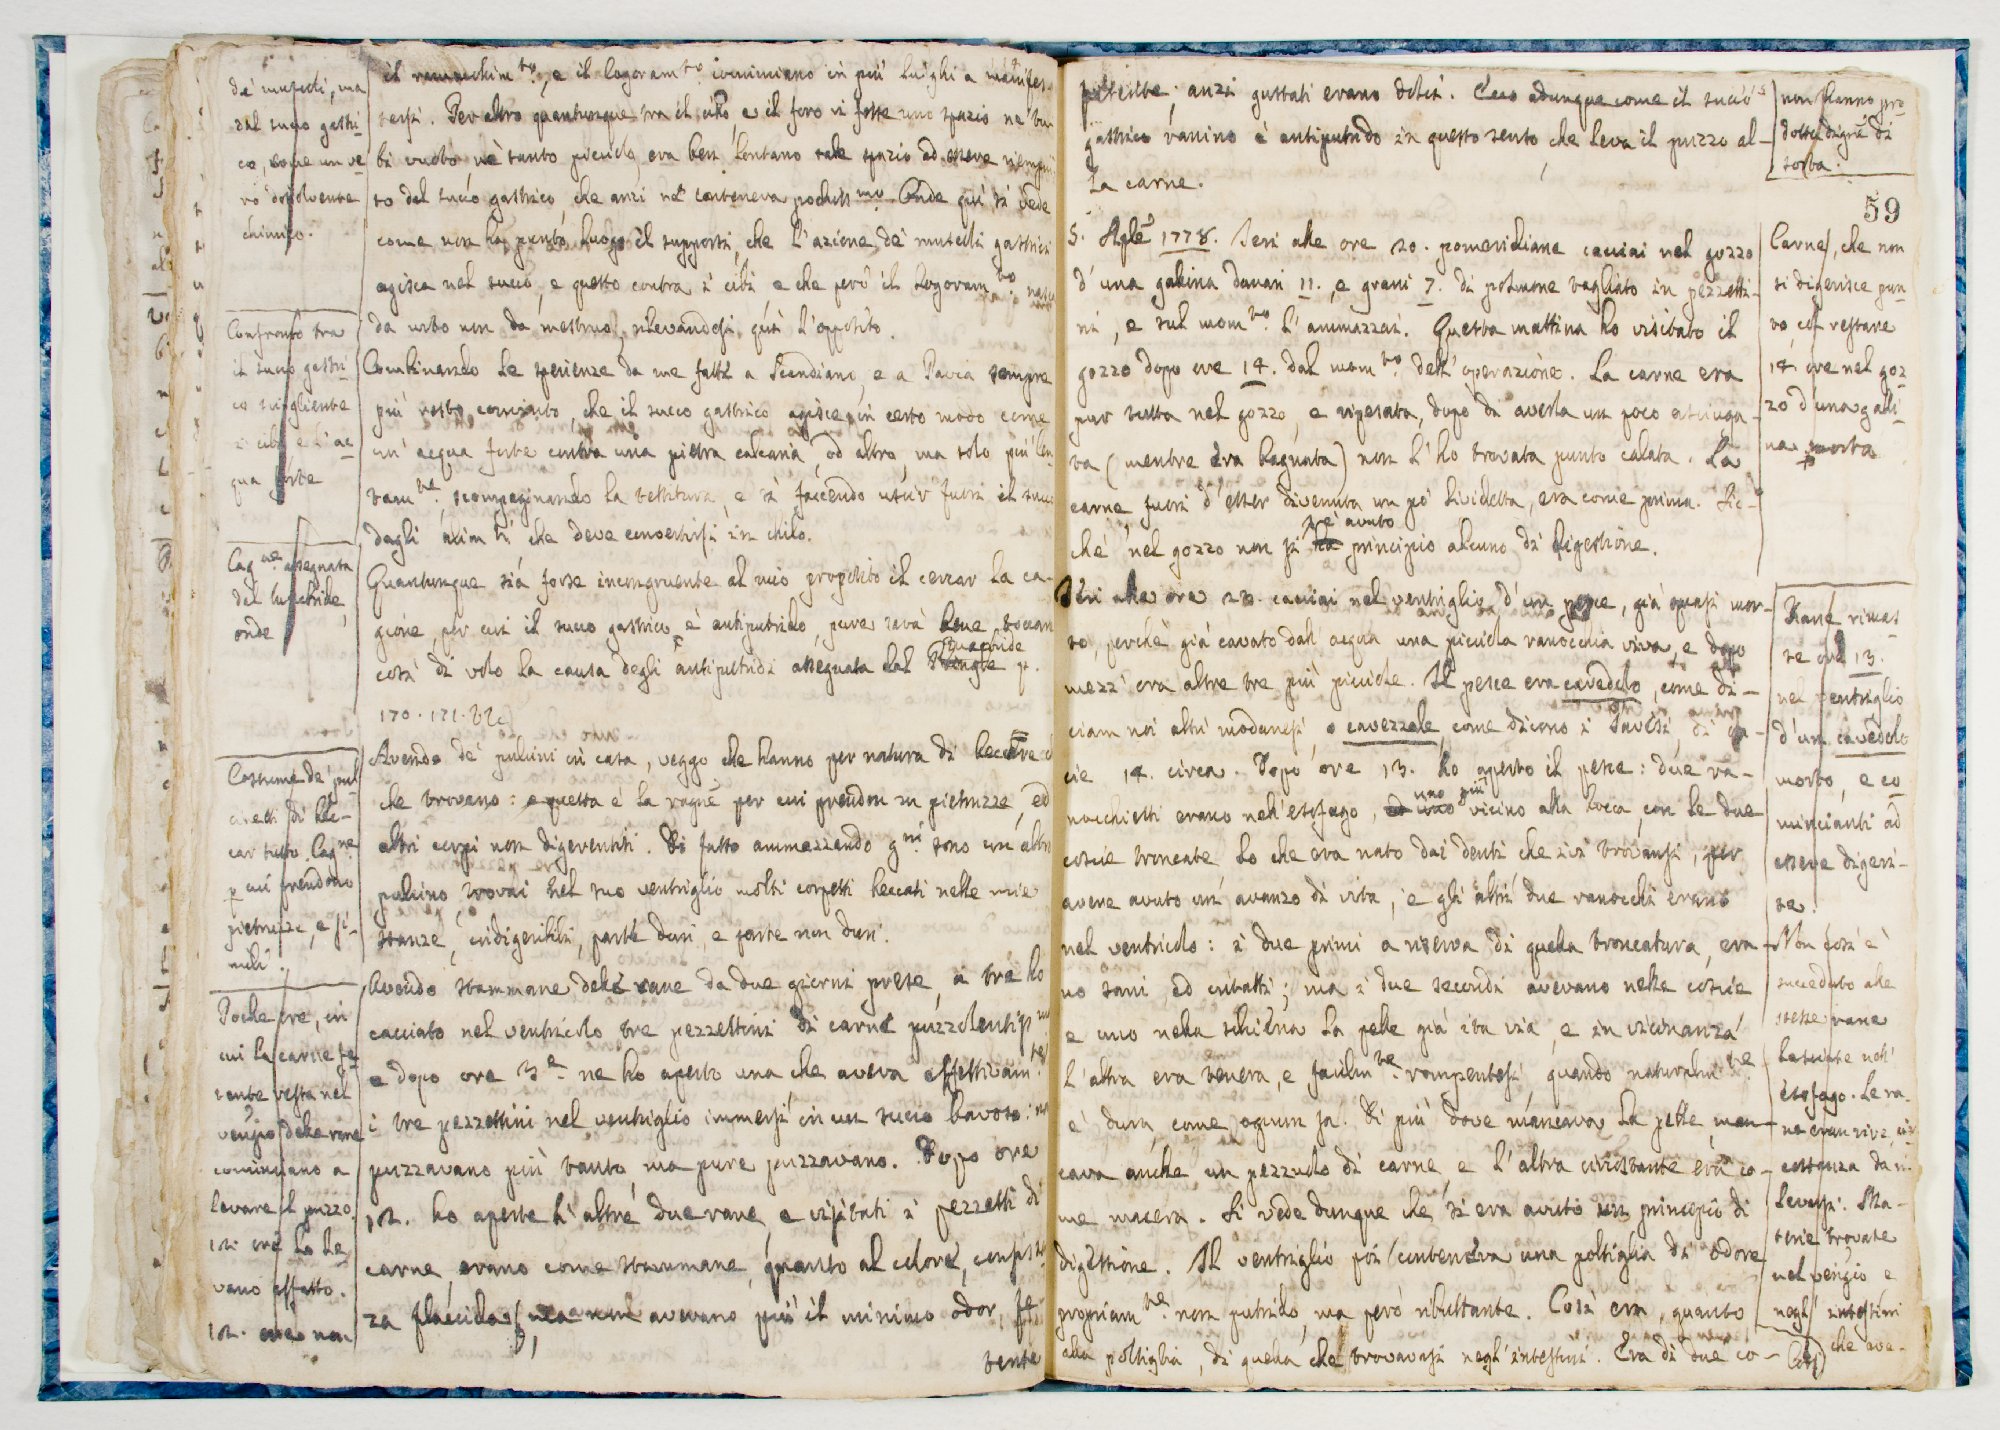 de' muscoli, ma
dal succo gastri-
co, come un ve-
ro dissolvente
chimico.
Confronto tra
il succo gastri-
co sciogliente
i cibi e l'ac-
qua forte
Cag.ne assegnata
dal
onde
Costume de' pul-
cini di bec-
car tutto. Cag.ne
p cui prendono
pietruzze, e si-
mili.
Poche ore, in
cui la carne fe-
tente resta nel
delle rane
cominciano a
levare il puzzo.
12. ore la le-
vano affatto.
12. ore non
il, e il logoram.to cominciano in più luoghi a manifes-
tarsi. Per altro quantunque tra il cibo, e il foro vi fosse uno spazio
vuoto, nè tanto picciolo, era ben lontano tale spazio ad essere riempi-
to del succo gastrico, che anzi ne conteneva pochiss.mo. Onde qui si vede
come non ha punto luogo il supporsi, che l'azione de' muscoli gastrici
agisca nel succo, e questo contra i cibi, e che però il logoram.to nasca
da urto non da mestruo, rilevandosi quà l'opposito.
Combinando le sperienze da me fatte a Scandiano, e a Pavia sempre
più resto convinto, che il succo gastrico agisce in certo modo come
un' acqua forte contra una pietra calcaria, od altro, ma solo più len-
tam.te, scompaginando la testura, e sì facendo uscir fuori il succo
dagli alim.ti che deve convertirsi in chilo.
Quantunque sia forse incongruente al mio proposito il cercar la ca-
gione per cui il succo gastrico è antiputrido, pure sarà bene toccare
così di volo la causa degli antiputridi assegnata dal Pringle p.
170. 171. &c.
Avendo de' pulcini in casa, veggo che hanno per natura di beccare ciò
che trovano: e questa è la ragne per cui prendon su pietruzze, ed
altri corpi non digeribili. Di fatto ammazzando g.ni sono un altro
pulcino, trovai nel suo ventriglio molti corpetti beccati nelle mie
stanze, indigeribili, parte duri, e parte non duri.
Avendo stammane delle rane da due giorni prese, a tre ho
cacciato nel ventricolo tre pezzettini di carne puzzolentiss.ma
e dopo ore 3 e ne ho aperto una che aveva effettivam.te
i tre pezzettini nel ventriglio immersi in un succo bavoso: non
puzzavano più tanto, ma pure puzzavano. Dopo ore
12. ho aperte l'altre due rane, e visitati i pezzetti di
carne, erano come stammane, quanto al colore, consisten-
za flaccida, ma non avevano più il minimo odor, fe-
tente
; anzi gustati erano dolci. Ecco adunque come il succo
gastrico ranino è antiputrido in questo senso, che leva il puzzo al-
la carne.
non hanno pro-
dotto digne di
sorta.
59
5. Aple 1778. Ieri alle ore 10. pomeridiane cacciai nel gozzo
d'una gallina danari 11., e grani 7. di polmone tagliato in pezzetti-
ni, e sul mom.to l'ammazzai. Questa mattina ho visitato il
gozzo dopo ore 14. dal mom.to dell'operazione. La carne era
pur tutta nel gozzo, e ripesata, dopo di averla un poco asciuga-
ta (mentre era bagnata) non l'ho trovata punto calata. La
carne fuori d'esser divenuta un po' lividetta, era come prima. Sic-
chè nel gozzo non si è avuto principio alcuno di digestione.
Carne, che non
si digerisce pun-
to, col restare
14. ore nel goz-
zo d'una galli-
na morta
Ieri alle ore 23. cacciai nel ventriglio d'un pesce, già quasi mor-
to, perchè già cavato dall'acqua una picciola ranocchia viva, e dopo
mezz'ora altre tre più picciole. Il pesce era cavedolo, come di-
ciam noi altri modanesi, o cavezzale, come dicono i Pavesi, di
cie 14. circa. Dopo ore 13. ho aperto il pesce: due ra-
nocchietti erano nell'esofago, uno più vicino alla bocca, con le due
coscie troncate lo che era nato dai denti che ivi trovansi, per
avere avuto un avanzo di vita, e gli altri due ranocchi erano
nel ventricolo: i due primi a riserva di quella troncatura, era-
no sani, ed intatti; ma i due secondi avevano nelle coscie
e uno nella schiena la pelle già ita via, e in vicinanza
l'altra era tenera, e facilm.te rompentesi, quando naturalm.te
è dura, come ognun sa. Di più dove mancava la pelle, man-
cava anche un pezzuolo di carne, e l'altra circostante era co-
me macera. Si vede dunque che si era avuto un principio di
digestione. Il ventriglio poi conteneva una poltiglia di odore
propriam.te non putrido, ma però ributtante. Così era, quanto
alla poltiglia, di quella che trovavasi negl'intestini. Era di due co-
Rane rimas-
te ore 13.
nel ventriglio
d'un cavedolo
morto, e co-
mincianti ad
essere digeri-
te.
Non così è
succeduto alle
stesse rane
lasciate nell'
esofago. Le ra-
ne eran vive,
Ma-
terie trovate
nel e
negl'intestini
che ave-